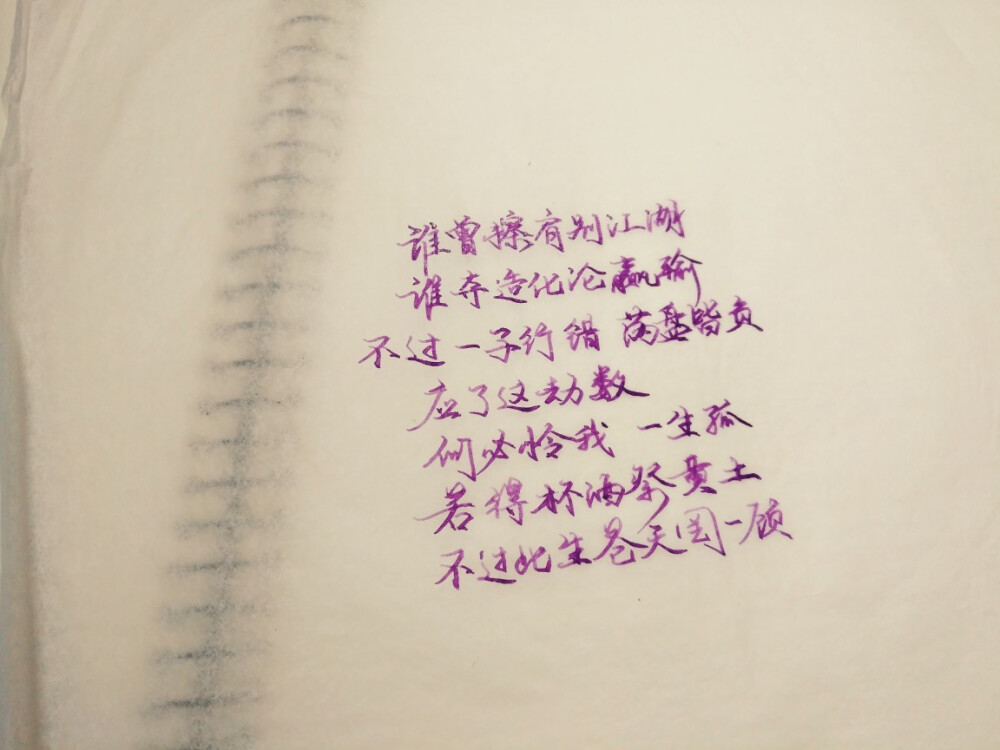 谁曾擦肩别江湖
谁夺造化论赢输
不过一子行错 满盘皆负
应了这劫数
何必怜我 一生孤
若得杯酒祭黄土
不过此生苍天罔一顾